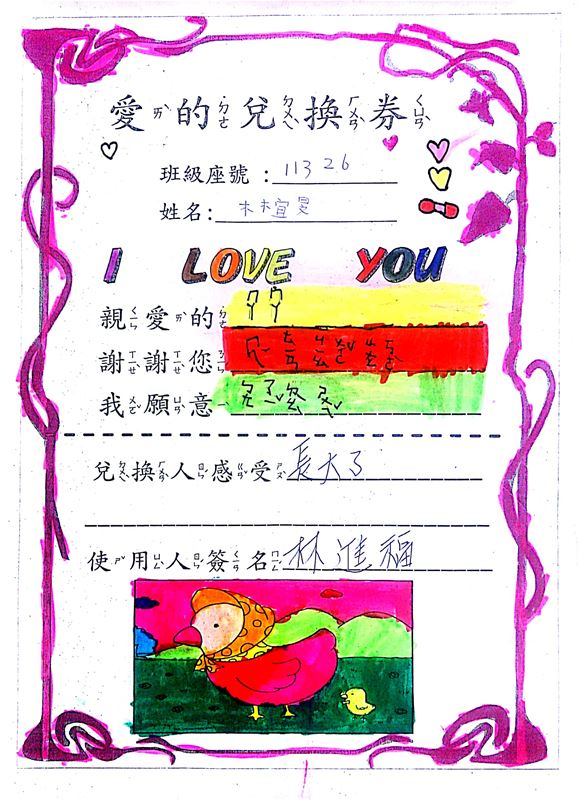 愛ㄞˋ的ㄉㄜ˙兌ㄉㄨㄟˋ換ㄏㄨㄢˋ券ㄑㄩㄢˋ
班級座號：11326
姓名：林楦旻
I LOVE YOU
親ㄑㄧㄣ愛ㄞˋ的ㄉㄜ˙
謝ㄒㄧㄝˋ謝ㄒㄧㄝˋ您ㄋㄧㄣˊ
我ㄨㄛˇ願ㄩㄢˋ意ㄧˋ
兌ㄉㄨㄟˋ換ㄏㄨㄢˋ人ㄖㄣˊ感ㄍㄢˇ受ㄕㄡˋ長大了
使ㄕˇ用ㄩㄥˋ人ㄖㄣˊ簽ㄑㄧㄢ名ㄇㄧㄥˊ林進福